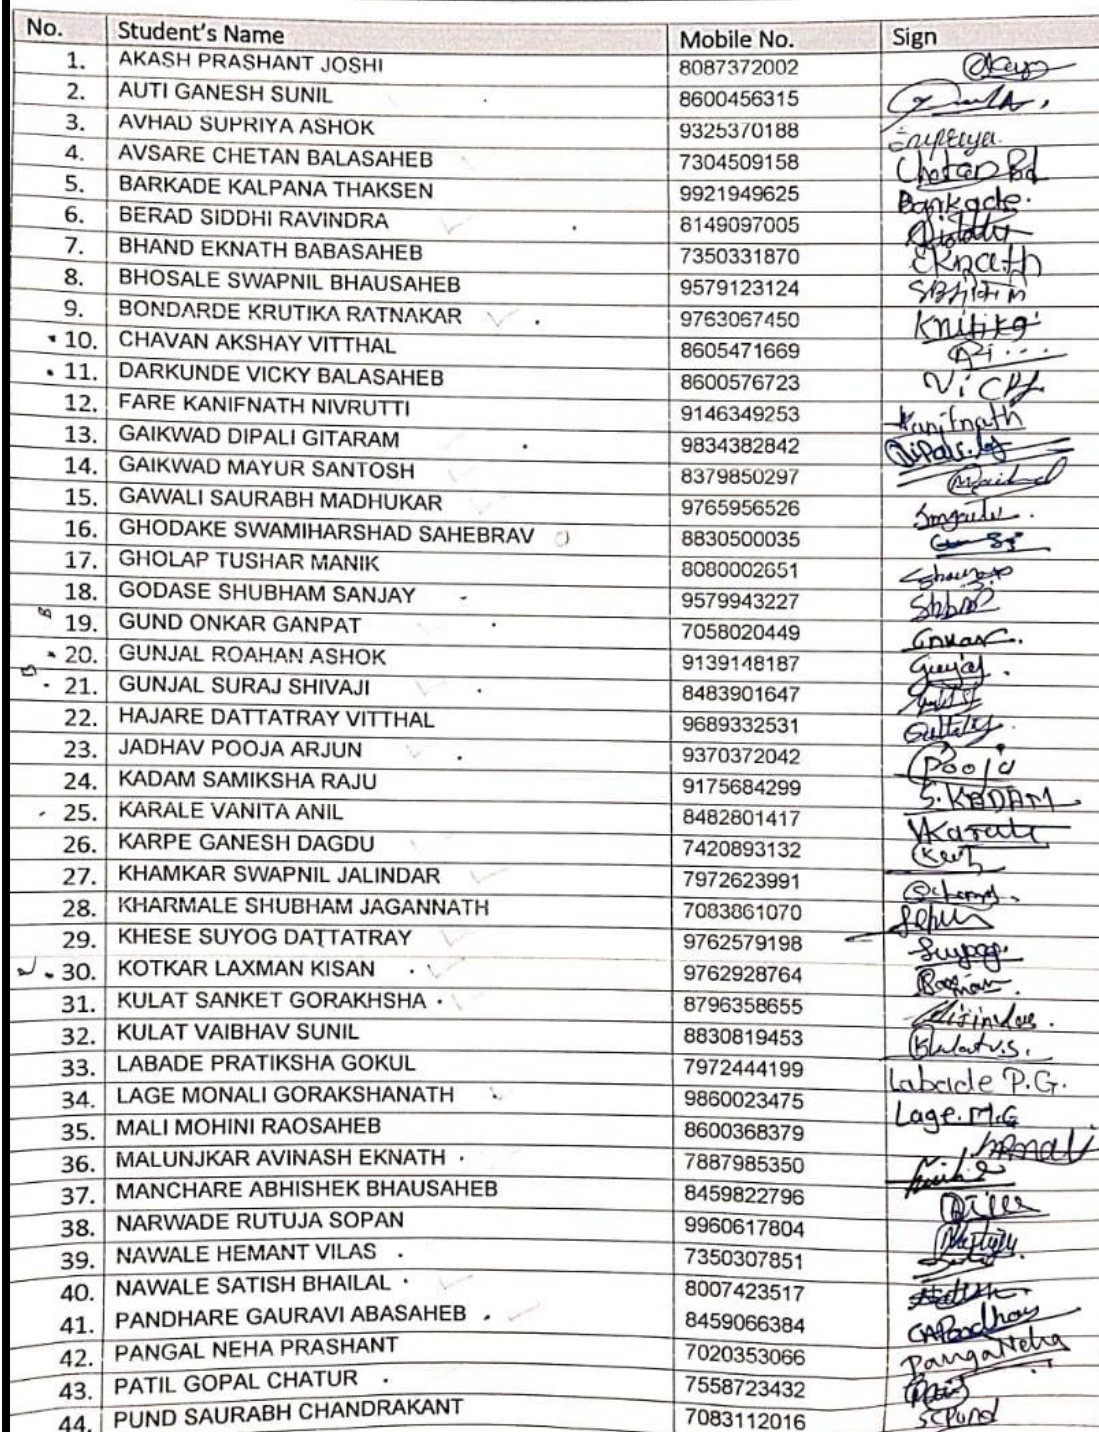 No. Student's Name Mobile No. Sign
1. AKASH PRASHANT JOSHI 8087372002
2. AUTI GANESH SUNIL 8600456315
3. AVHAD SUPRIYA ASHOK 9325370188
4. AVSARE CHETAN BALASAHEB 7304509158 Chetan
5. BARKADE KALPANA THAKSEN 9921949625 Barkade.
6. BERAD SIDDHI RAVINDRA 8149097005
7. BHAND EKNATH BABASAHEB 7350331870 Eknath
8. BHOSALE SWAPNIL BHAUSAHEB 9579123124
9. BONDARDE KRUTIKA RATNAKAR 9763067450
10. CHAVAN AKSHAY VITTHAL 8605471669
11. DARKUNDE VICKY BALASAHEB 8600576723
12. FARE KANIFNATH NIVRUTTI 9146349253 Kanifnath
13. GAIKWAD DIPALI GITARAM 9834382842
14. GAIKWAD MAYUR SANTOSH 8379850297
15. GAWALI SAURABH MADHUKAR 9765956526
16. GHODAKE SWAMIHARSHAD SAHEBRAV 8830500035
17. GHOLAP TUSHAR MANIK 8080002651
18. GODASE SHUBHAM SANJAY 9579943227
19. GUND ONKAR GANPAT 7058020449
20. GUNJAL ROAHAN ASHOK 9139148187
21. GUNJAL SURAJ SHIVAJI 8483901647
22. HAJARE DATTATRAY VITTHAL 9689332531
23. JADHAV POOJA ARJUN 9370372042 Pooja
24. KADAM SAMIKSHA RAJU 9175684299 S.KADAM
25. KARALE VANITA ANIL 8482801417 VKarale
26. KARPE GANESH DAGDU 7420893132
27. KHAMKAR SWAPNIL JALINDAR 7972623991
28. KHARMALE SHUBHAM JAGANNATH 7083861070
29. KHESE SUYOG DATTATRAY 9762579198
30. KOTKAR LAXMAN KISAN 9762928764
31. KULAT SANKET GORAKHSHA 8796358655
32. KULAT VAIBHAV SUNIL 8830819453
33. LABADE PRATIKSHA GOKUL 7972444199 Labade P.G.
34. LAGE MONALI GORAKSHANATH 9860023475 Lage.M.G
35. MALI MOHINI RAOSAHEB 8600368379
36. MALUNJKAR AVINASH EKNATH 7887985350
37. MANCHARE ABHISHEK BHAUSAHEB 8459822796
38. NARWADE RUTUJA SOPAN 9960617804
39. NAWALE HEMANT VILAS 7350307851
40. NAWALE SATISH BHAILAL 8007423517
41. PANDHARE GAURAVI ABASAHEB 8459066384
42. PANGAL NEHA PRASHANT 7020353066
43. PATIL GOPAL CHATUR 7558723432
44. PUND SAURABH CHANDRAKANT 7083112016 SCPund